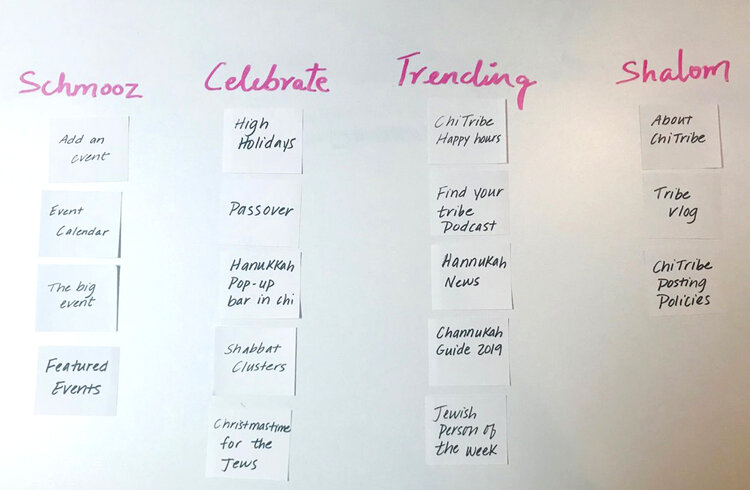 Schmooz
Add an
event
Event
Calendar
The big
event
Featured
Events
Celebrate
High
Holidays
Passover
Hanukkah
Pop-up
bar in chi
Shabbat
Clusters
Christmastime
for the
Jews
Trending
ChiTribe
Happy hours
Find your
tribe
Podcast
Hannukah
News
Channukah
Guide 2019
Jewish
person of
the week
Shalom
About
ChiTribe
Tribe
Vlog
ChiTribe
posting
Policies